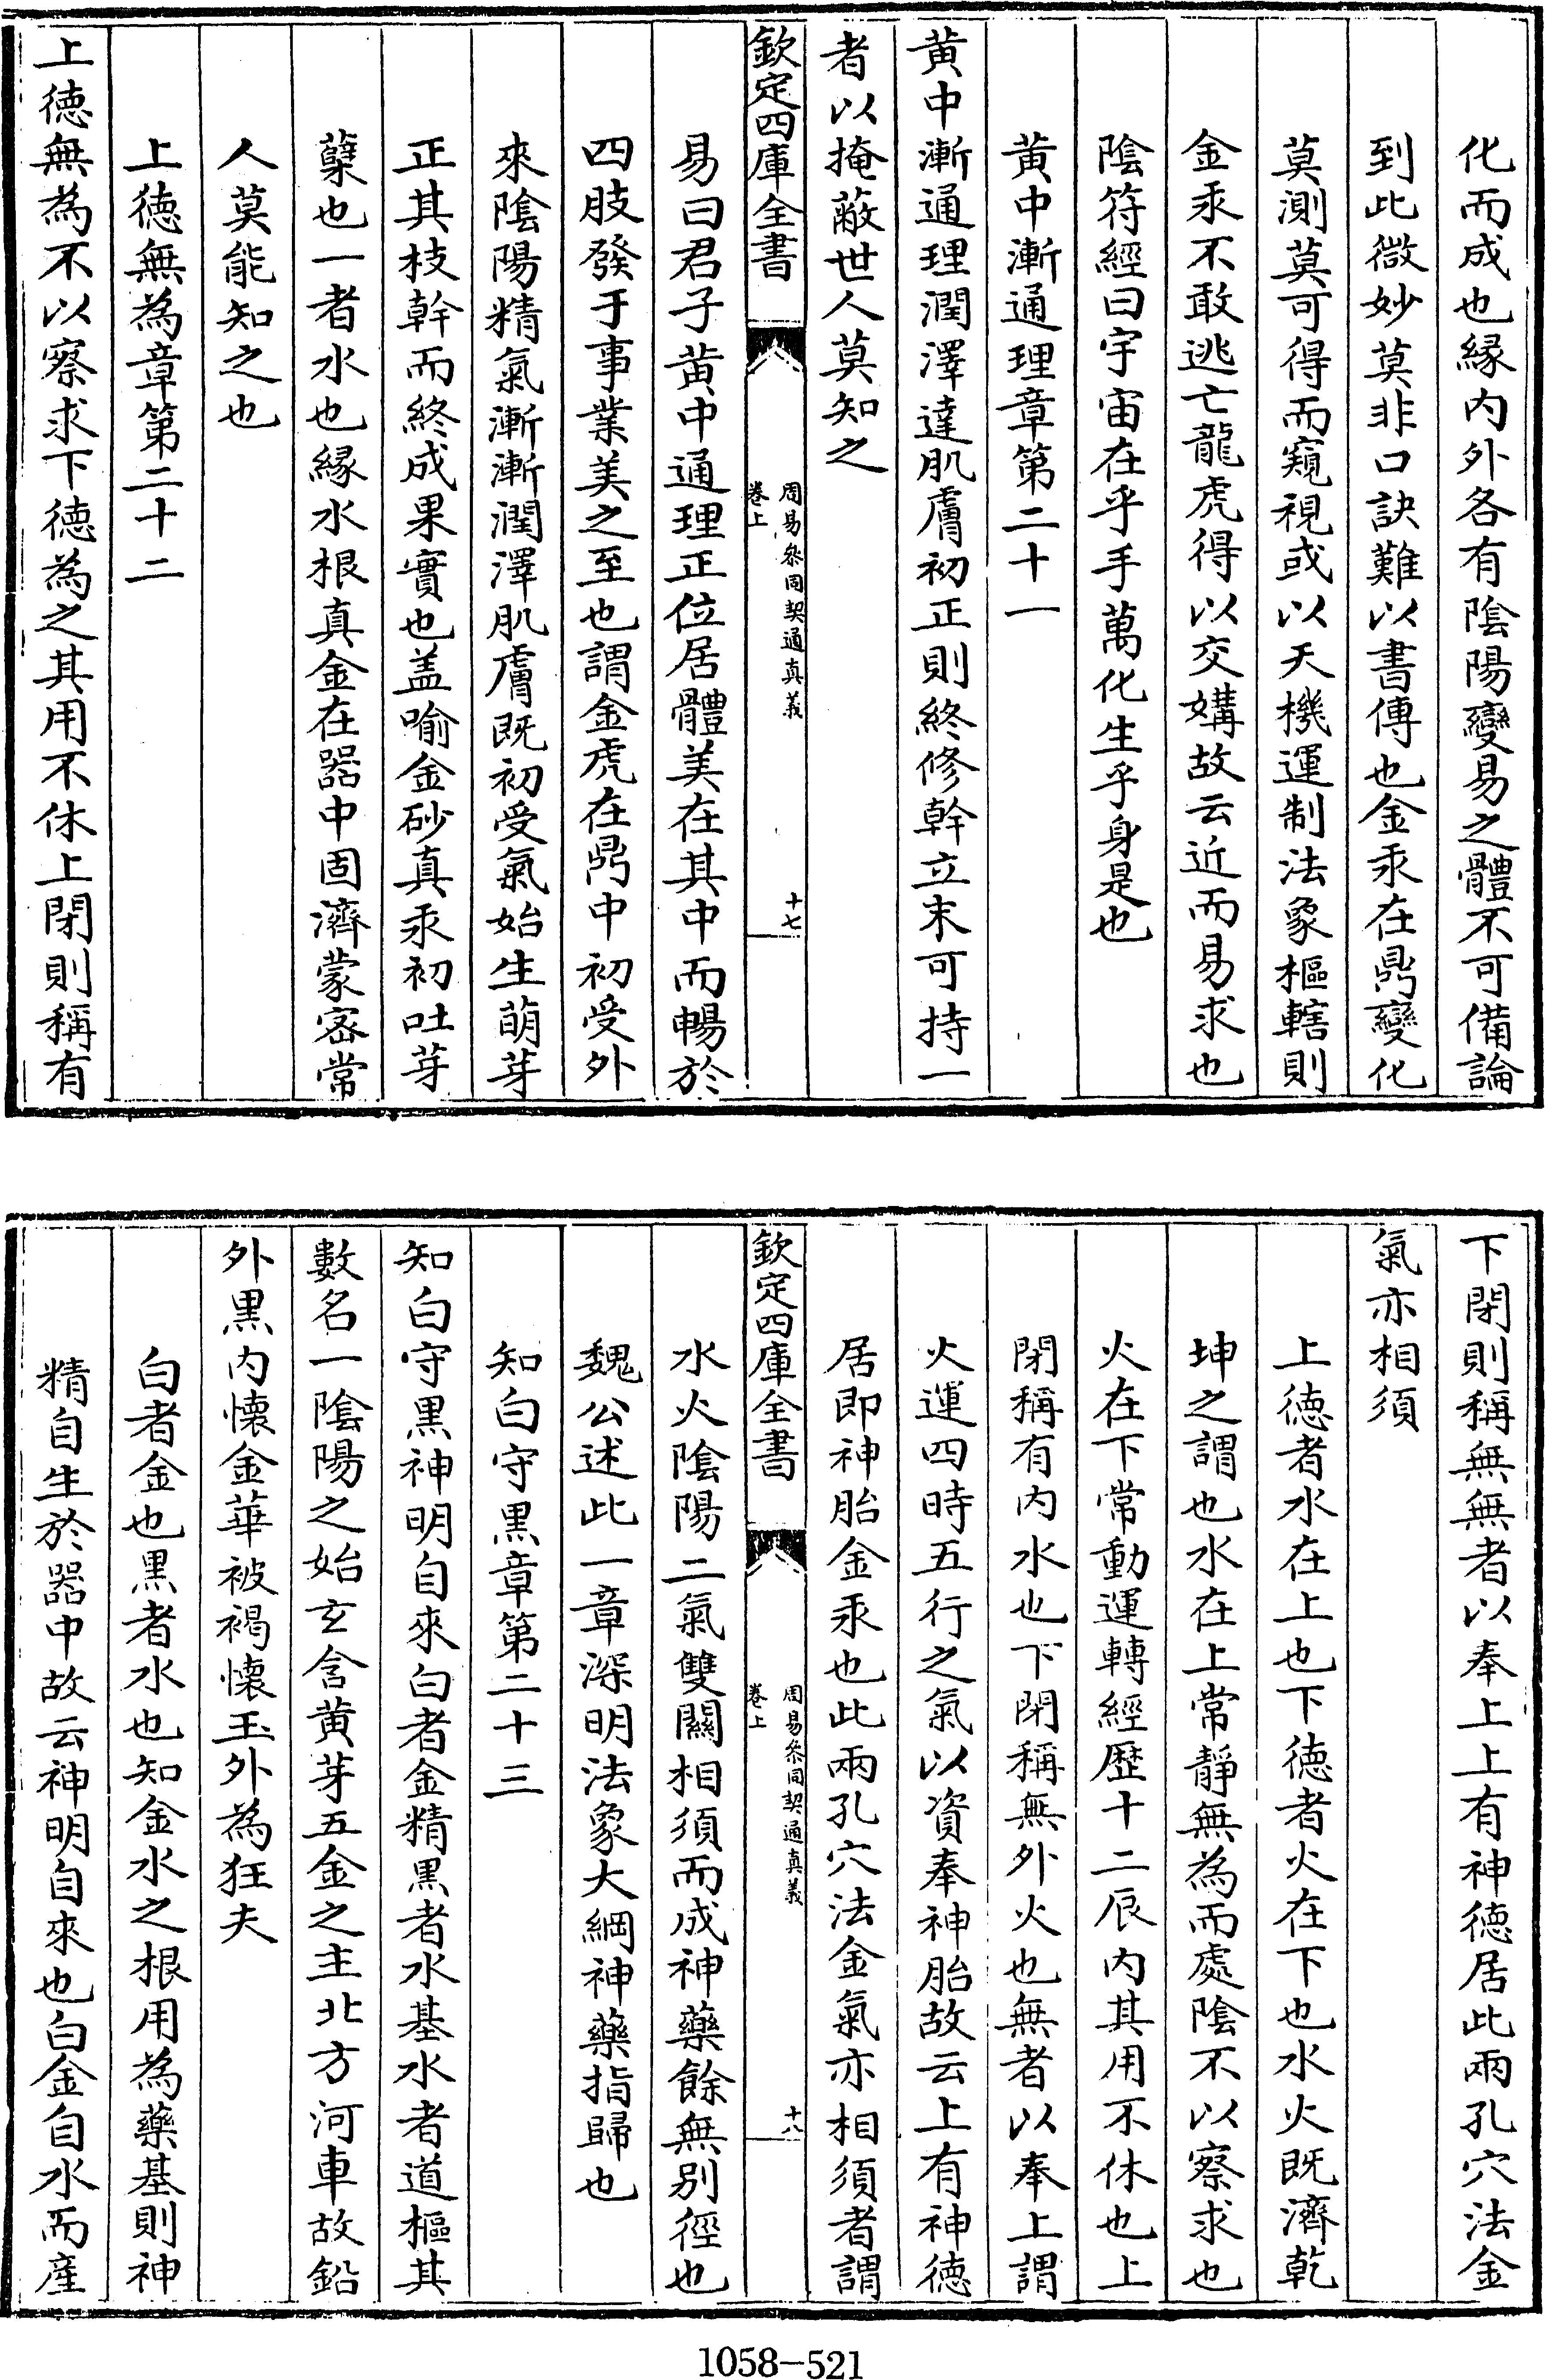 化而成也縁内外各有陰陽變易之體不可備論
到此微妙莫非口訣難以書傳也金汞在鼎變化
莫測莫可得而窺視或以天機運制法象樞轄則
金汞不敢逃亡龍虎得以交媾故云近而易求也
陰符經曰宇宙在乎手萬化生乎身是也
黄中漸通理章第二十一
黄中漸通理潤澤達肌膚初正則終修幹立末可持一
者以掩蔽世人莫知之
欽定四庫全書
周易叅同契通真義
卷上
十七
易曰君子黄中通理正位居體美在其中而暢於
四肢發于事業美之至也謂金虎在鼎中初受外
來陰陽精氣漸漸潤澤肌膚既初受氣始生萌芽
正其枝幹而終成果實也盖喻金砂真汞初吐芽
蘖也一者水也縁水根真金在器中固濟蒙宻常
人莫能知之也
上徳無為章第二十二
上徳無為不以察求下徳為之其用不休上閉則稱有
下閉則稱無無者以奉上上有神徳居此兩孔穴法金
氣亦相須
上徳者水在上也下徳者火在下也水火既濟乾
坤之謂也水在上常靜無為而處陰不以察求也
火在下常動運轉經歴十二辰内其用不休也上
閉稱有内水也下閉稱無外火也無者以奉上謂
火運四時五行之氣以資奉神胎故云上有神徳
居即神胎金汞也此兩孔穴法金氣亦相須者謂
欽定四庫全書
周易叅同契通真義
卷上
十八
水火陰陽二氣雙關相須而成神藥餘無别徑也
魏公述此一章深明法象大綱神藥指歸也
知白守黒章第二十三
知白守黒神明自來白者金精黒者水基水者道樞其
數名一陰陽之始玄含黄芽五金之主北方河車故鉛
外黒内懐金華被褐懐玉外為狂夫
白者金也黒者水也知金水之根用為藥基則神
精自生於器中故云神明自來也白金自水而產
1058-521